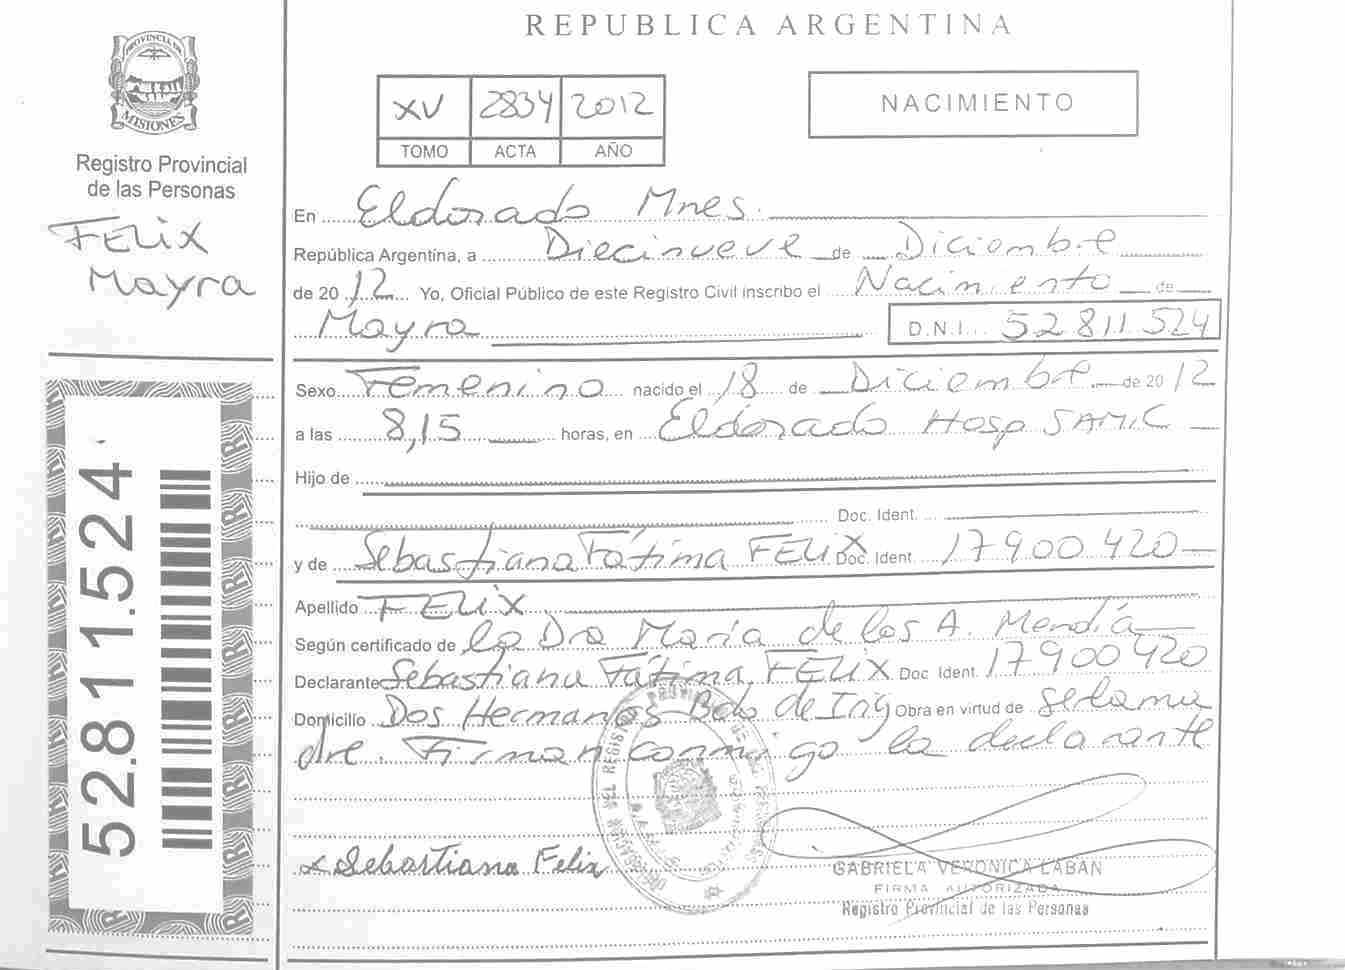 REPUBLICA ARGENTINA
PROVINCIA DE
MISIONES
Registro Provincial
de las Personas
FELIX
Mayra
XV 2834 2012
TOMO ACTA AÑO
NACIMIENTO
En Eldorado Mnes.
República Argentina, a Diecinueve de Diciembre
de 20 12 Yo, Oficial Público de este Registro Civil inscribo el Nacimiento de
Mayra D.N.I. 52811524
Sexo Femenino nacido el 18 de Diciembre de 20 12
a las 8,15 horas, en Eldorado Hosp SAMIC
Hijo de
Doc. Ident.
y de Sebastiana Fátima FELIX Doc. Ident. 17900420
Apellido FELIX
Según certificado de la Dra María de los A. Mendía
Declarante Sebastiana Fátima FELIX Doc Ident. 17900420
Domicilio Dos Hermanas Bdo de Irig Obra en virtud de ser la ma
dre. Firman conmigo la declarante
x Sebastiana Felix
GABRIELA VERONICA LABAN
FIRMA AUTORIZADA
Registro Provincial de las Personas
52.811.524